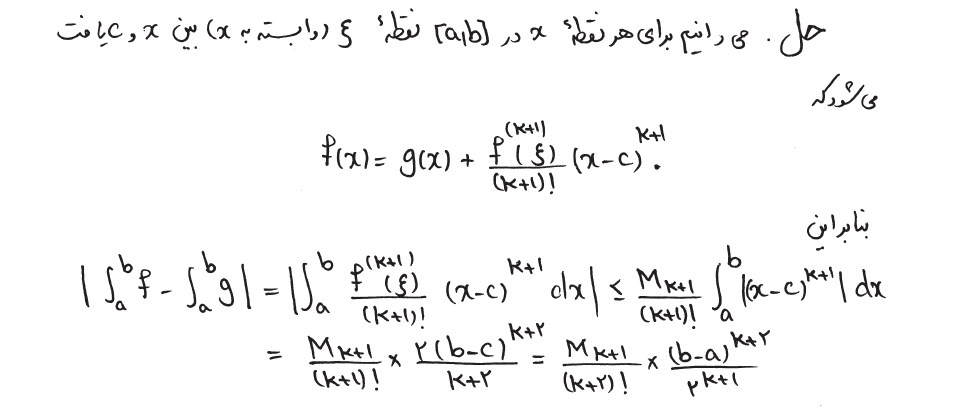 حل. می دانیم برای هر نقطهٔ x در [a,b] نقطهٔ ξ (وابسته به x) بین x و c یافت
می شود که
f(x) = g(x) + \frac{f^{(k+1)}(ξ)}{(k+1)!} (x-c)^{k+1}.
بنابراین
|∫_a^b f - ∫_a^b g| = |∫_a^b \frac{f^{(k+1)}(ξ)}{(k+1)!} (x-c)^{k+1} dx| ≤ \frac{M_{k+1}}{(k+1)!} ∫_a^b |(x-c)^{k+1}| dx
= \frac{M_{k+1}}{(k+1)!} × \frac{۲(b-c)^{k+۲}}{k+۲} = \frac{M_{k+1}}{(k+۲)!} × \frac{(b-a)^{k+۲}}{۲^{k+1}}